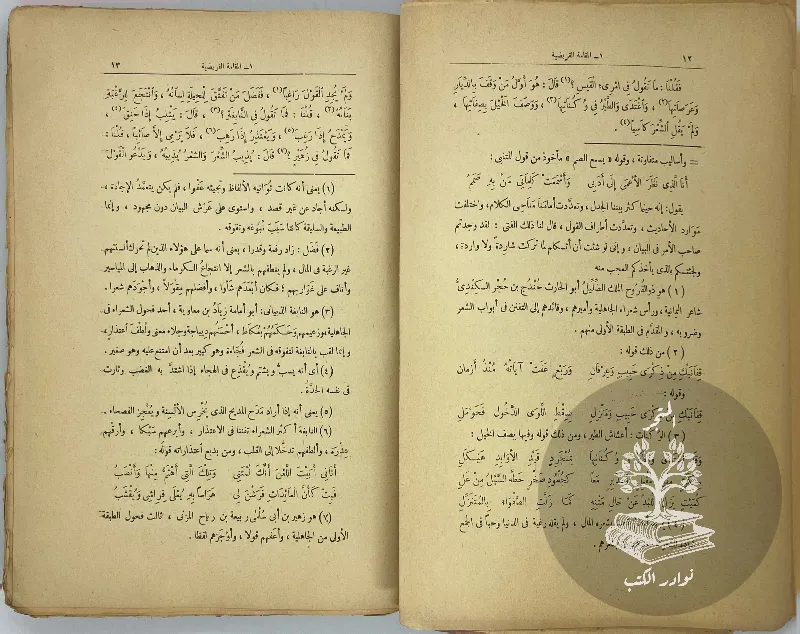 ١٢
١ـ المقامة القريضية
فَقُلْنَا: ما تَقُولُ فى امْرِىءِ القَيْسِ؟(١) قالَ: هُوَ أَوَّلُ مَنْ وَقَفَ بِالدِّيَارِ
وَعَرَصَاتِهَا(٢) ، وَاغْتَدَى وَالطَّيْرُ فِي وُكُنَاتِهَا(٣) ، وَوَصَفَ الخَيْلَ بِصِفَاتِهَا ،
وَلَمْ يَقُلِ الشِّعْرَ كَاسِباً(٤)
= وأساليب متفاوتة ، وقوله « يسمع الصم » مأخوذ من قول المتنبي :
أنَا الَّذِى نَظَرَ الأعْمَى إلَى أَدَبِى وَأَسْمَعَتْ كَلِمَاتِى مَنْ بِهِ صَمَمُ
يقول : إنه حينما كثر بيننا الجدل ، وتعدّدت أمامَنَا مَنَاحِى الكلام ، واختلفت
مَوَارِد الأحاديث ، وتعدّدت أطراف القول ، قال لنا ذلك الفتى : لقد وجدتم
صاحب الأمر فى البيان ، وإنى لو شئت أن أتكلم لما تركت شاردة ولا واردة ،
ولجئتكم بالذى يأخذكم العجب منه
(١) هو ذو القُرُوح الملك الضِّلِّيلُ أبو الحارث حُنْدُج بن حُجْر الكِنْدِىُّ
شاعر اليمانية ، ورأس شعراء الجاهلية وأميرهم ، وقائدهم إلى التفنن فى أبواب الشعر
وضروبه ، والمُقَدَّم فى الطبقة الأولى منهم .
(٢) من ذلك قوله :
قِفَا نَبْكِ مِنْ ذِكْرَى حَبِيبٍ وَعِرْفَانِ وَرَبْعٍ عَفَتْ آيَاتُهُ مُنْذُ أَزْمَانِ
وقوله :
قِفَا نَبْكِ مِنْ ذِكْرَى حَبِيبٍ وَمَنْزِلِ بِسِقْطِ اللِّوَى بَيْنَ الدَّخُولِ فَحَوْمَلِ
(٣) الوكنات : أعشاش الطير ، ومن ذلك قوله وفيها يصف الخيل :
وُكُنَاتِهَا بِمُنْجَرِدٍ قَيْدِ الأَوَابِدِ هَيْكَلِ
مَعًا كَجُلْمُودِ صَخْرٍ حَطَّهُ السَّيْلُ مِنْ عَلِ
كُمَيْتٍ يَزِلُّ اللِّبْدُ عَنْ حَالِ مَتْنِهِ كَمَا زَلَّتِ الصَّفْوَاءُ بِالْمُتَنَزِّلِ
المال ، ولم يقله رغبة فى الدنيا وحبا فى الجمع
المتجر
نوادر الكتب
١ـ المقامة القريضية
١٣
وَلَمْ يُجِدِ القَوْلَ رَاغِباً(١) ، فَفَضَلَ مَنْ تَفَتَّقَ لِلْحِيلَةِ لِسَانُهُ ، وَانْتَجَعَ لِلرَّغْبَةِ
بَنَانُهُ(٢) ، قُلْنَا : فَمَا تَقُولُ فى النَّابِغَةِ؟(٣) ، قالَ : يَثْلِبُ إِذَا حَنِقَ(٤) ،
وَيَمْدَحُ إذَا رَغِبَ(٥) ، وَيَعْتَذِرُ إِذَا رَهِبَ(٦) ، فَلَا يَرْمِى إِلَّا صَائِباً ، قُلْنَا :
فَمَا تَقُولُ فى زُهَيْرٍ؟(٧) قالَ : يُذِيبُ الشِّعْرَ وَالشِّعْرُ يُذِيبُهُ ، وَيَدْعُو القَوْلَ
(١) يعنى أنه كانت تُوَاتيه الألفاظ وتجيئه عَفْوا ، فلم يكن يتعمَّدُ الإجادة ،
ولكنه أجاد عن غير قصد ، واستوى على عَرْش البيان دون مجهود ، وإنما
الطبيعة والسليقة كانتا سَبَبَ نُبُوغه وتفوقه .
(٢) فَضَلَ : زاد رفعة وقدرا ، يعنى أنه سما على هؤلاء الذين لم تحرك ألسنتهم
غير الرغبة فى المال ، ولم ينطقهم بالشعر إلا انتجاعُ الكرماء والذهاب إلى المياسير
وأناف على نُظرائهم ؛ فكان أبْعَدَهم شأْوا ، وأفضلهم مِقْوَلا ، وأجْوَدَهم شعرا .
(٣) هو النابغة الذبيانى : أبو أمامة زِيَادُ بن معاوية ، أحد فحول الشعراء فى
الجاهلية ، وزعيمهم وَحَكَمُهُمْ بِعُكَاظَ ، أَحْسَنُهم دِيباجة وجلاء معنى وألطفُ اعتذار ،
وإنما لقب بالنابغة لتفوقه فى الشعر فُجَاءة وهو كبير بعد أن امتنع عليه وهو صغير .
(٤) أى أنه يسبُّ ويشتم ويُقْذِع فى الهجاء إذا اشتدَّ به الغضب وثارت
فى نفسه الحِدَّةُ .
(٥) يعنى أنه إذا أراد مَدَح المديح الذى يُخْرِس الألْسِنة ويُعْجِز الفصحاء .
(٦) النابغة أكثر الشعراء تفننا فى الاعتذار ، وأبرعهم سَبْكا ، وأرقهم
عِذْرَة ، وألطفهم تدخُّلا إلى القلب ، ومن بديع اعتذاراته قوله :
أَتَانِى أَبَيْتَ اللَّعْنَ أَنَّكَ لُمْتَنِى وَتِلْكَ الَّتِى أَهْتَمُّ مِنْهَا وَأَنْصَبُ
فَبِتُّ كَأَنَّ الْعَائِدَاتِ فَرَشْنَ لِى هَرَاساً بِهِ يُعْلَى فِرَاشِى وَيُقْشَبُ
(٧) هو زهير بن أبى سُلْمَى ربيعة بن رباح المزنى ، ثالث فحول الطبقة
الأولى من الجاهلية ، وأعَفهم قولا ، وأَوْجَزهم لفظا .